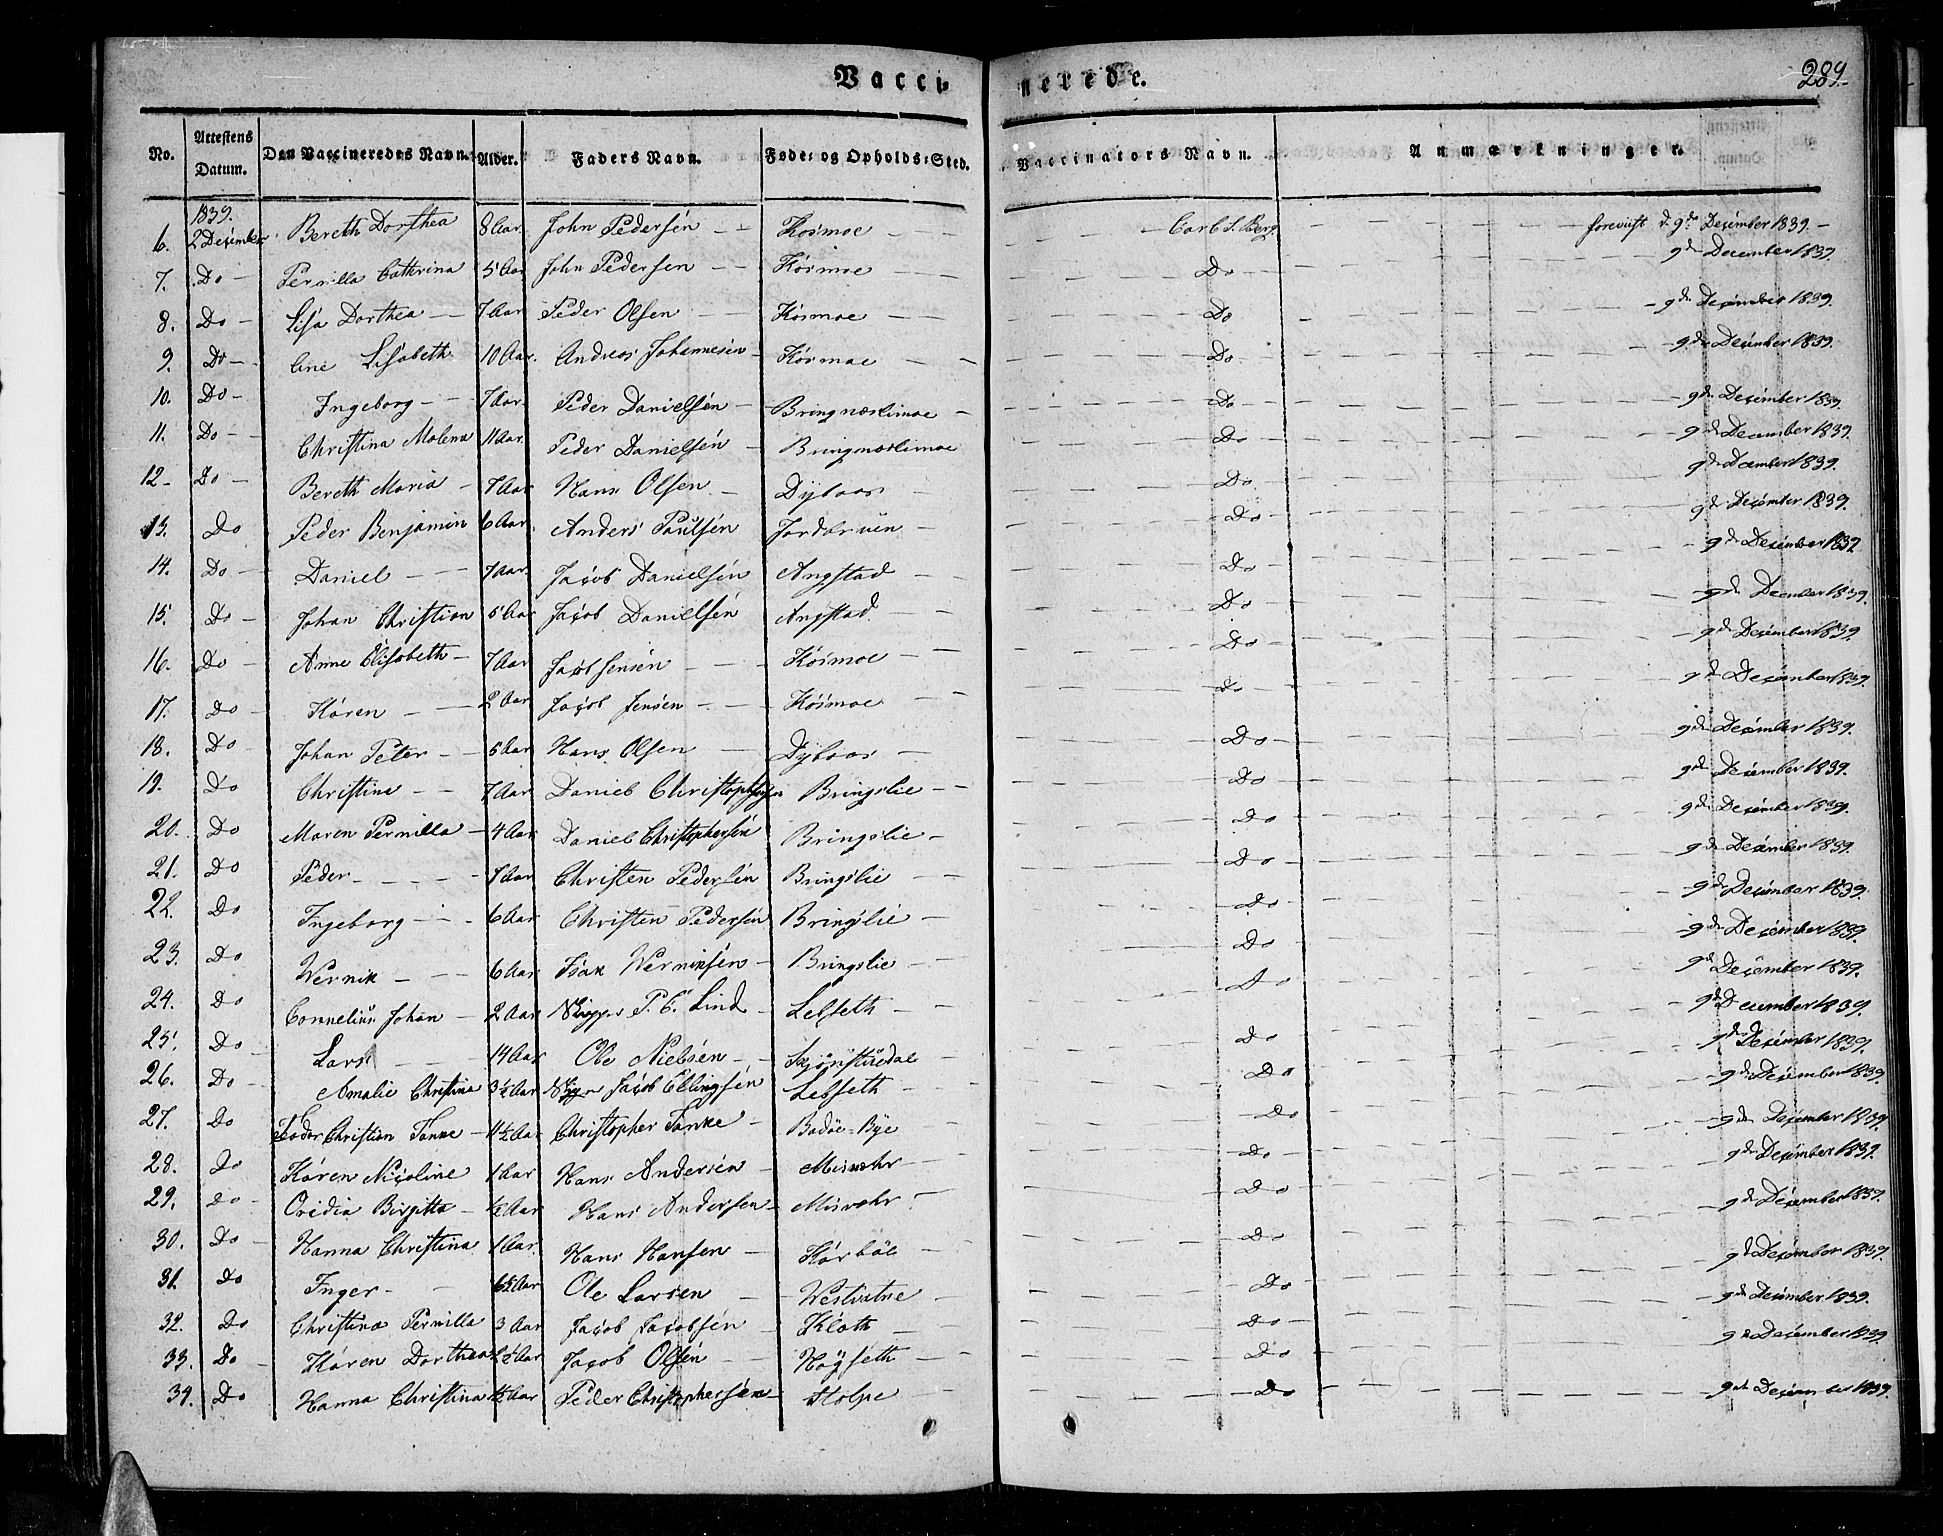 Vacci- nerede. 289.
No. Attestens Datum. Den Vaccineredes Navn. Alder. Faders Navn. Føde- og Opholds-Sted. Vaccinators Navn. Anmærkninger.
1839.
6. 2 Desember Bereth Dorthea 8 Aar John Pedersen Kosmoe Carl S. Berg foreviist d. 9de Desember 1839.
7. Do Pernilla Cathrina 5 Aar John Pedersen Kosmoe Do 9de December 1839.
8. Do Lisa Dorthea 7 Aar Peder Olsen Kosmoe Do 9de Desember 1839.
9. Do Ane Lisabeth 10 Aar. Andreas Johannesen Kosmoe Do 9de Desember 1839.
10. Do Ingeborg 7 Aar. Peder Danielsen Bringnæslimoe Do 9de Desember 1839.
11. Do Christina Molena 11 Aar. Peder Danielsen Bringnæslimoe Do 9de December 1839.
12 Do Bereth Maria 7 Aar Hans Olsen Dybaas Do 9de December 1839.
13. Do Peder Benjamin 6 Aar. Anders Paulsen Jordbruen Do 9de Desember 1839.
14. Do Daniel 7 Aar. Jacob Danielsen Angstad Do 9de Desember 1839
15. Do Johan Christian 5 Aar Jacob Danielsen Angstad Do 9de December 1839.
16. Do Anne Elisabeth 7 Aar Jacob Jensen Kosmoe Do 9de Desember 1839.
17. Do Karen 2 Aar Jacob Jensen Kosmoe Do 9de Desember 1839.
18. Do Johan Peter 5 Aar Hans Olsen Dybaas Do 9de Desember 1839.
19. Do Christine 7 Aar Daniel Christophersen Bringslie Do 9de Desember 1839.
20. Do Maren Pernilla 4 Aar Daniel Christophersen Bringslie Do 9de Desember 1839.
21. Do Peder 7 Aar Christen Pedersen Bringslie Do 9de Desember 1839.
22. Do Ingeborg 6 Aar Christen Pedersen Bringslie Do 9de Desember 1839.
23. Do Wernik 6 Aar Isak Werniksen Bringslie Do 9de Desember 1839.
24. Do Cornelius Johan 2 Aar P. C. Lind Lebseth Do 9de Desember 1839.
25. Do Lars 14 Aar Ole Nielsen Skjønstuedal Do 9de December 1839.
26. Do Amalie Christina 3½ Aar Jacob Ellingsen Lebseth Do 9de Desember 1839.
27. Do Christian Tanke 1½ Aar Christopher Tanke Badøe-Bye Do 9de Desember 1839.
28. Do Karen Nicoline 1 Aar Hans Andersen Misvahr Do 9de Desember 1839.
29. Do Ovidia Birgitta ½ Aar Hans Andersen Misvahr Do 9de Desember 1839.
30. Do Hanna Christina 1 Aar. Hans Hansen Karbøl Do 9de Desember 1839.
31. Do Inger 6½ Aar Ole Larsen Westvatne Do 9de Desember 1839.
32. Do Christina Pernilla 3 Aar Jacob Jacobsen Kloth Do 9de Desember 1839
33. Do Karen Dorthea Aar Jacob Olsen Høgseth Do
34. Do Hanna Christina ½ Aar Peder Christophersen Stolpe Do 9de Desember 1839.